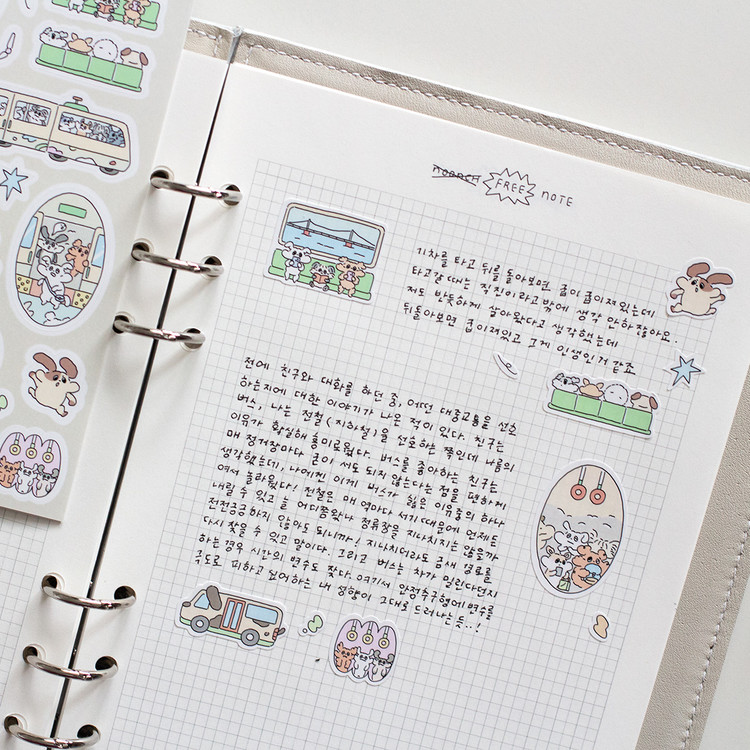 noonch FREE NOTE
기차를 타고 뒤를 돌아보면 굽이 굽이져있는데
타고갈 때는 직진이라고 밖에 생각 안하잖아요.
저도 반듯하게 살아왔다고 생각했는데
뒤돌아보면 굽이져있고 그게 인생인거 같죠
전에 친구와 대화를 하던 중, 어떤 대중교통을 선호
하는지에 대한 이야기가 나온 적이 있다. 친구는
버스, 나는 전철(지하철)을 선호하는 쪽인데 나름의
이유가 확실해 흥미로웠다. 버스를 좋아하는 친구는
매 정거장마다 굳이 서도 되지 않는다는 점을 편하게
생각했는데, 나에겐 이게 버스가 싫은 이유중의 하나
여서 놀라웠다! 전철은 매 역마다 서기 때문에 언제든
내릴 수 있고 늘 어디쯤왔나 정류장을 지나치지는 않을까
전전긍긍하지 않아도 되니까! 지나치더라도 금새 경로를
다시 찾을 수 있고 말이다. 그리고 버스는 차가 밀린다던지
하는 경우 시간의 변수도 잦다. 여기서 안정추구형에 변수를
극도로 피하고 싶어하는 내 성향이 그대로 드러나는 듯..!